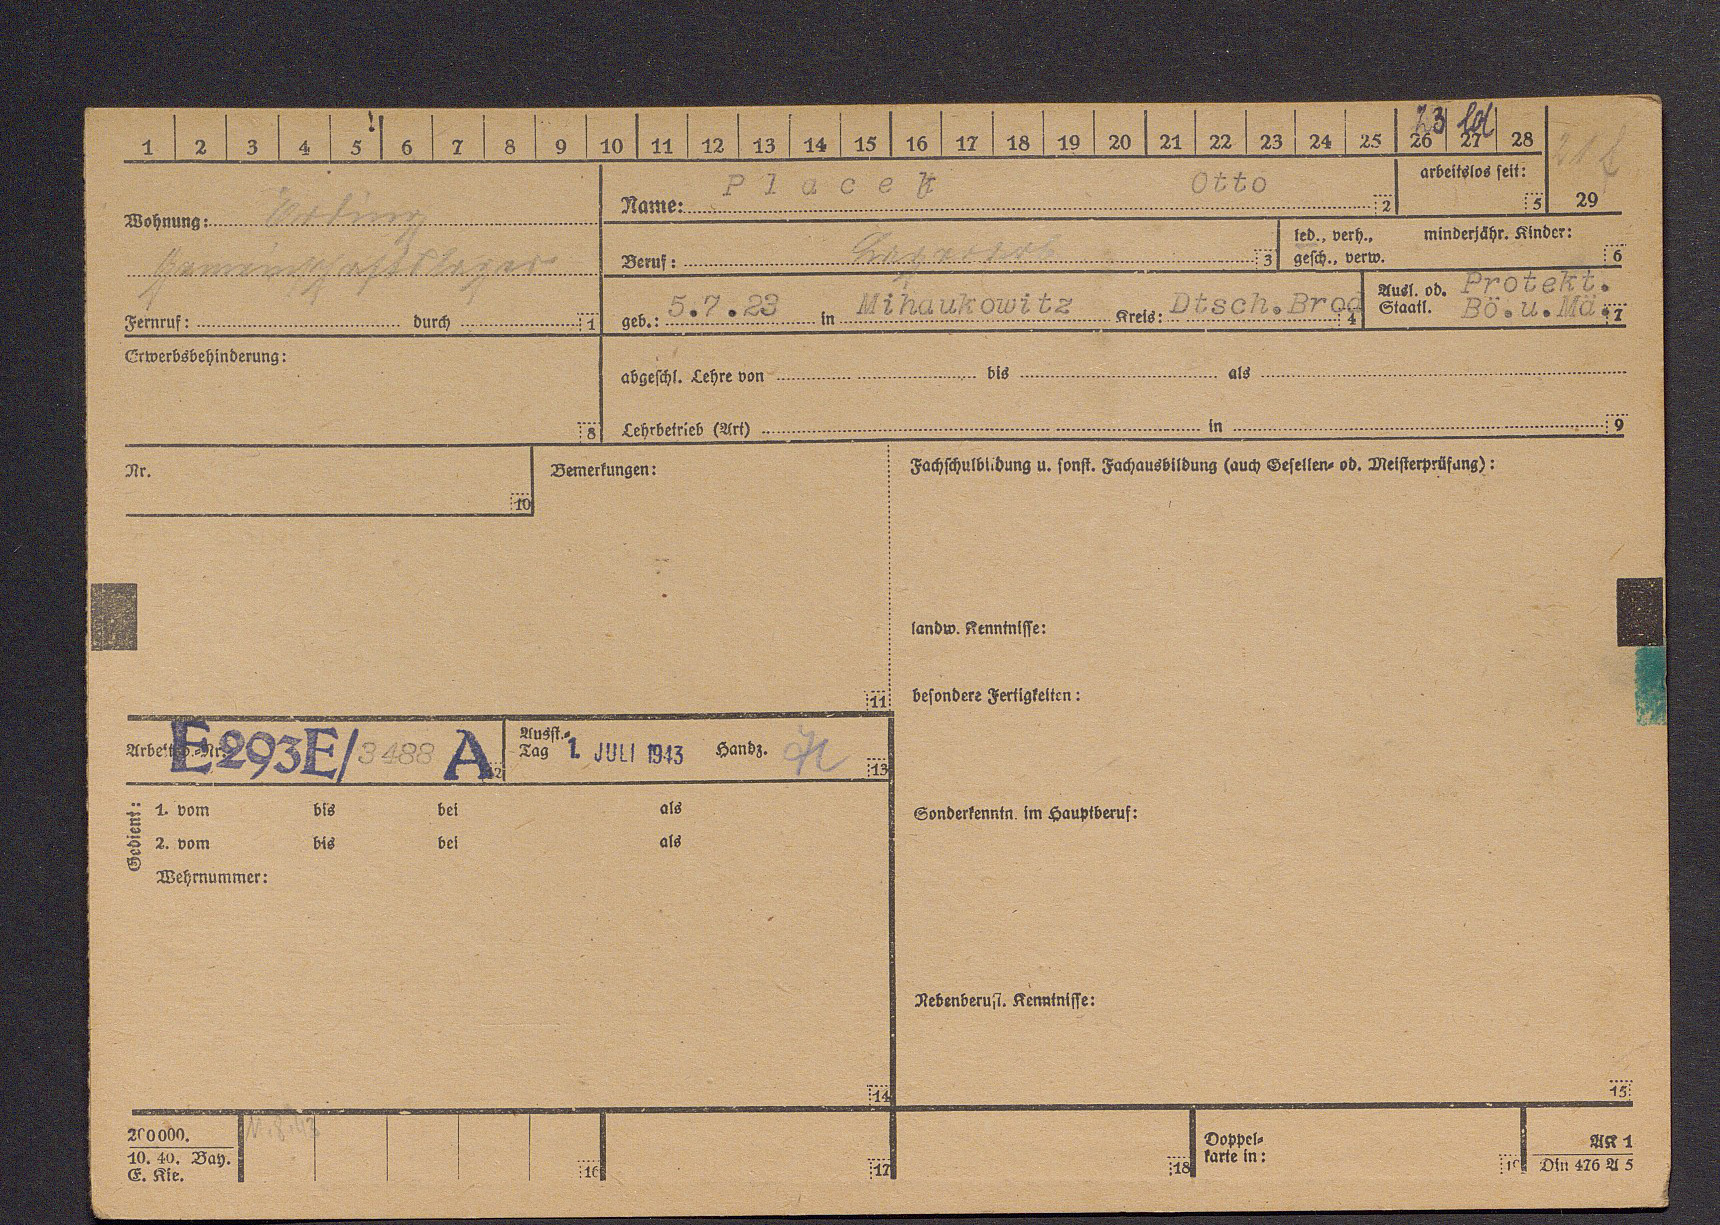 1 2 3 4 5 6 7 8 9 10 11 12 13 14 15 16 17 18 19 20 21 22 23 24 25 26 27 28 29
23 ld
Wohnung:
Gemeinschaftslager
Fernruf: durch 1
Name: Placek Otto 2
arbeitslos seit: 5
Beruf: 3
led., verh., minderjähr. Kinder:
gesch., verw. 6
geb.: 5.7.23 in Mihaukowitz Kreis: Dtsch.Brod 4
Ausl. od. Protekt.
Staatl. Bö.u.Mä. 7
Erwerbsbehinderung:
8
abgeschl. Lehre von bis als
Lehrbetrieb (Art) in 9
Nr.
10
Bemerkungen:
11
Fachschulbildung u. sonst. Fachausbildung (auch Gesellen- od. Meisterprüfung):
landw. Kenntnisse:
besondere Fertigkeiten:
Sonderkenntn. im Hauptberuf:
Nebenberufl. Kenntnisse:
15
Arbeitsb.-Nr. E293E/3488 A 12
Ausst.-
Tag 1. JULI 1943 Handz. 13
Gedient:
1. vom bis bei als
2. vom bis bei als
Wehrnummer:
14
200000.
10. 40. Bay.
E. Kie.
11.8.43
16
17
18
Doppel-
karte in: 19
AK 1
Din 476 A 5